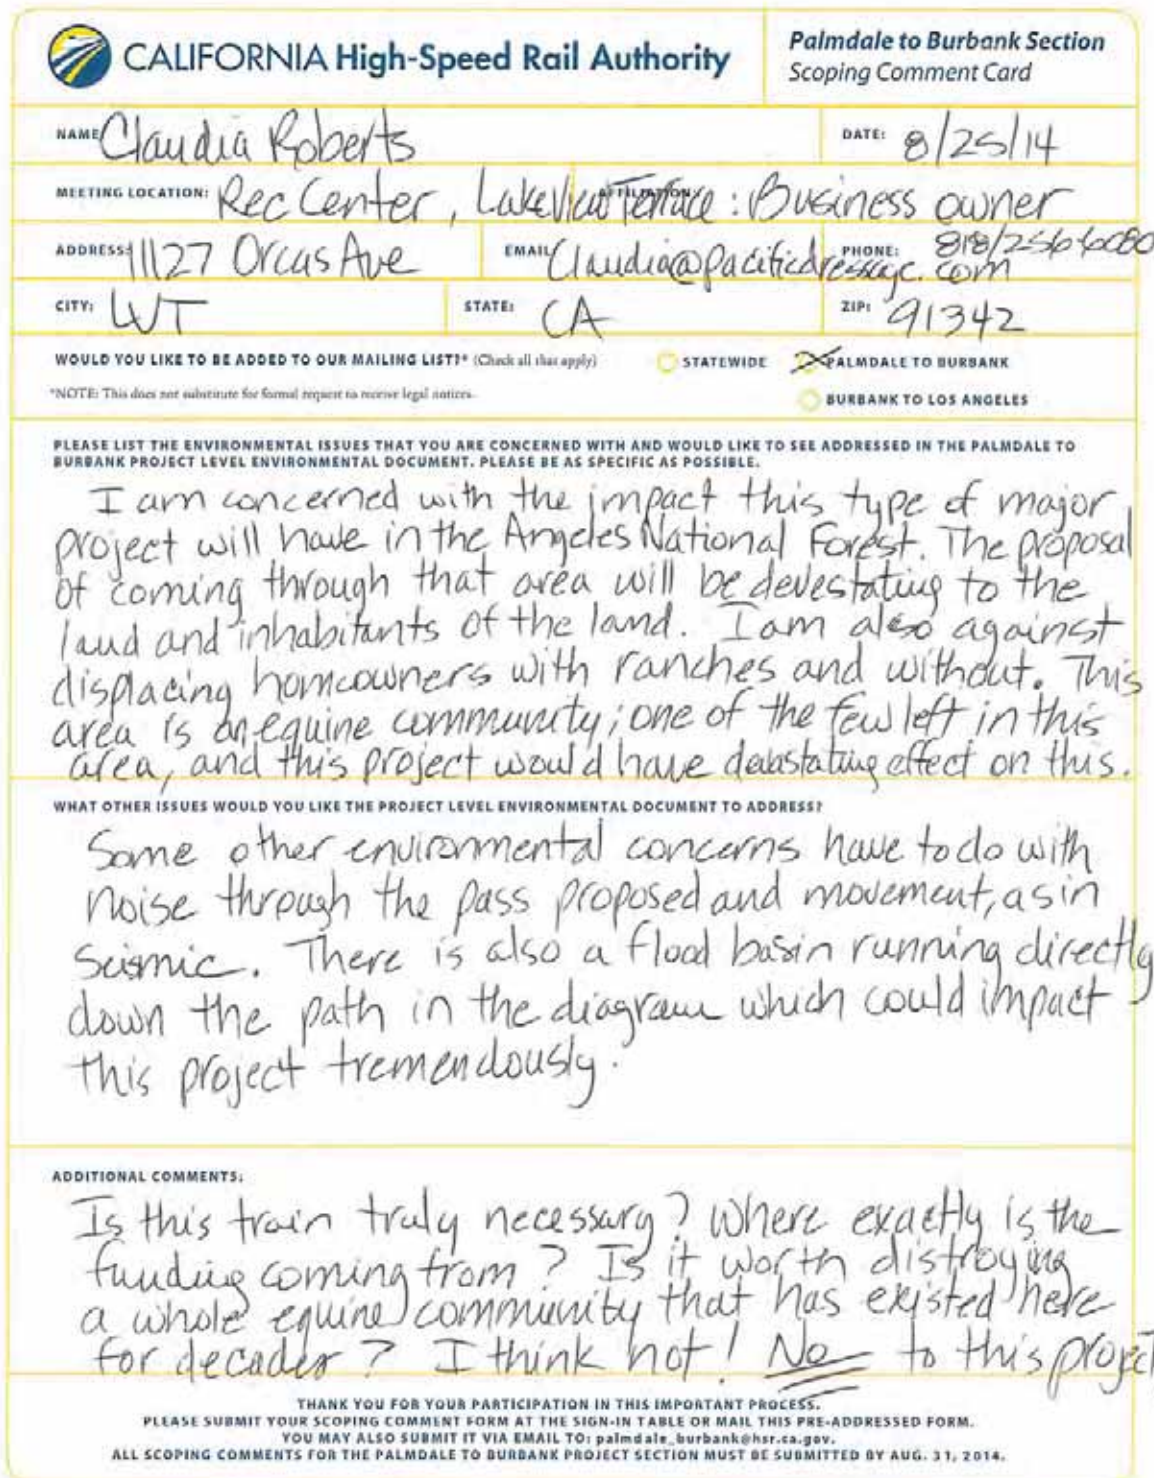 CALIFORNIA High-Speed Rail Authority
Palmdale to Burbank Section
Scoping Comment Card
NAME: Claudia Roberts
DATE: 8/25/14
MEETING LOCATION: Rec Center, Lakeview Terrace
AFFILIATION: Business owner
ADDRESS: 11127 Orcas Ave
EMAIL: Claudia@pacificdressage.com
PHONE: 818/
CITY: LVT
STATE: CA
ZIP: 91342
WOULD YOU LIKE TO BE ADDED TO OUR MAILING LIST?* (Check all that apply)
STATEWIDE
PALMDALE TO BURBANK
*NOTE: This does not substitute for formal request to receive legal notices.
BURBANK TO LOS ANGELES
PLEASE LIST THE ENVIRONMENTAL ISSUES THAT YOU ARE CONCERNED WITH AND WOULD LIKE TO SEE ADDRESSED IN THE PALMDALE TO
BURBANK PROJECT LEVEL ENVIRONMENTAL DOCUMENT. PLEASE BE AS SPECIFIC AS POSSIBLE.
I am concerned with the impact this type of major
project will have in the Angeles National Forest. The proposal
of coming through that area will be devestating to the
land and inhabitants of the land. I am also against
displacing homeowners with ranches and without. This
area is an equine community; one of the few left in this
area, and this project would have devastating effect on this.
WHAT OTHER ISSUES WOULD YOU LIKE THE PROJECT LEVEL ENVIRONMENTAL DOCUMENT TO ADDRESS?
Some other environmental concerns have to do with
noise through the pass proposed and movement, as in
Seismic. There is also a flood basin running directly
down the path in the diagram which could impact
this project tremendously.
ADDITIONAL COMMENTS:
Is this train truly necessary? Where exactly is the
funding coming from? Is it worth distroying
a whole equine community that has existed here
for decades? I think not! No to this project
THANK YOU FOR YOUR PARTICIPATION IN THIS IMPORTANT PROCESS.
PLEASE SUBMIT YOUR SCOPING COMMENT FORM AT THE SIGN-IN TABLE OR MAIL THIS PRE-ADDRESSED FORM.
YOU MAY ALSO SUBMIT IT VIA EMAIL TO: palmdale_burbank@hsr.ca.gov.
ALL SCOPING COMMENTS FOR THE PALMDALE TO BURBANK PROJECT SECTION MUST BE SUBMITTED BY AUG. 31, 2014.